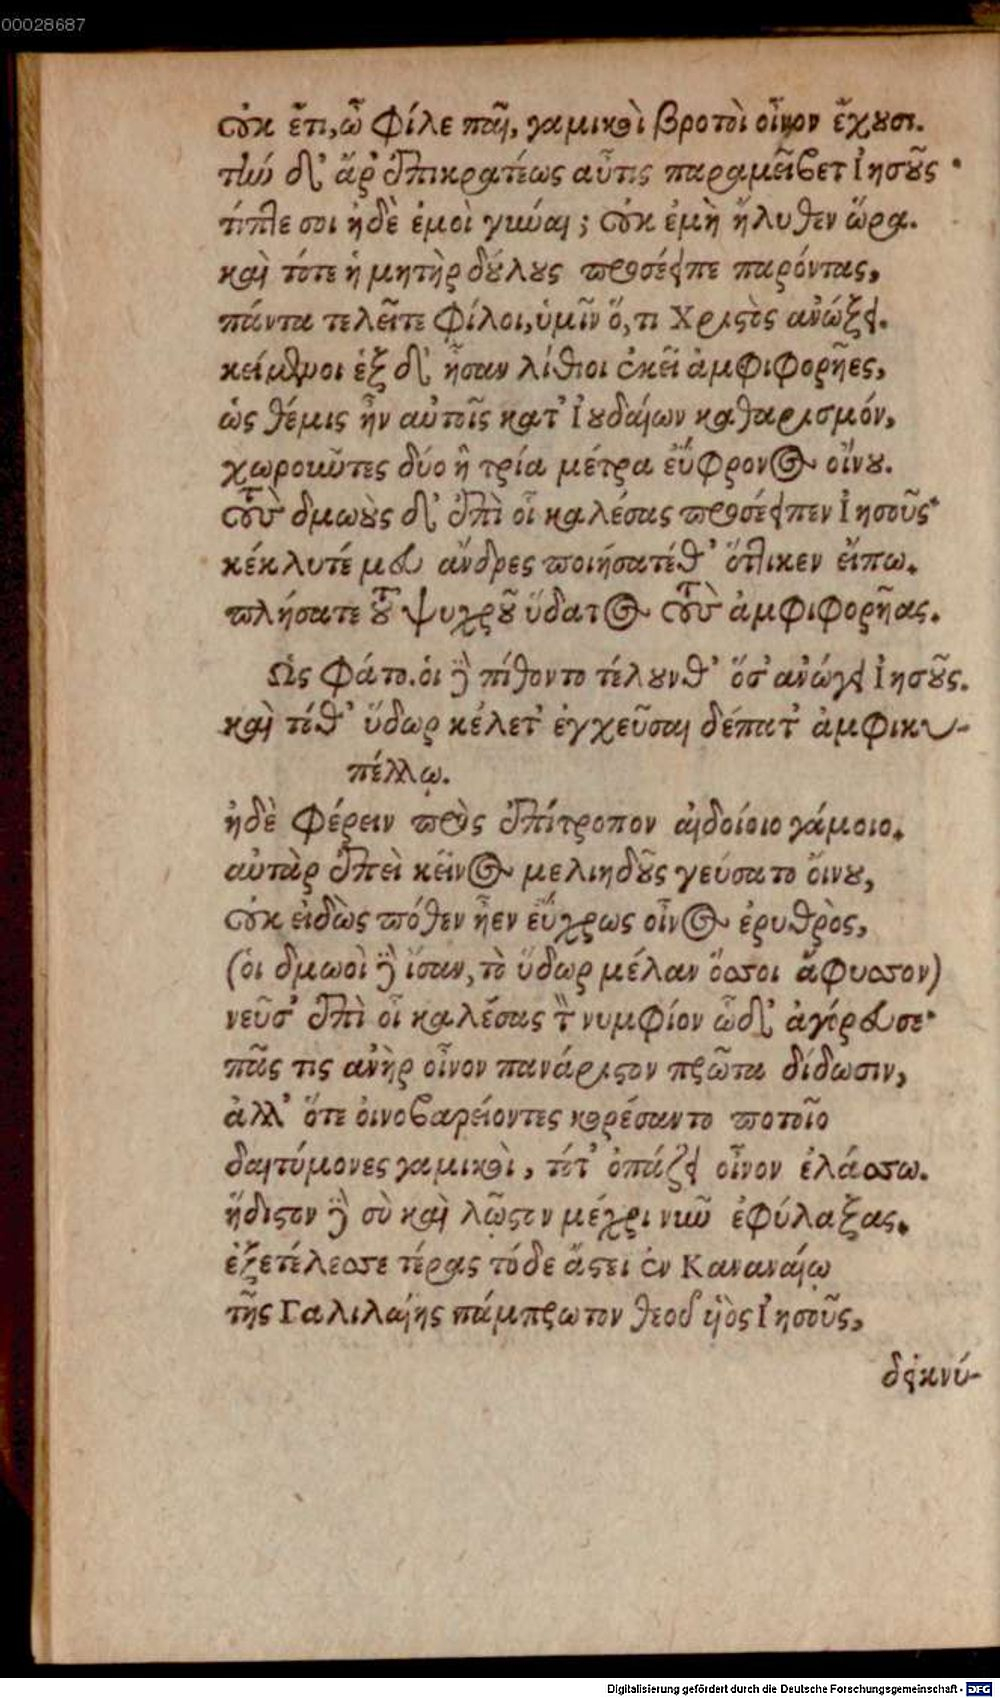 00028687
οὐκ ἔτι, ὦ φίλε παῖ, γαμικοὶ βροτοὶ οἶνον ἔχουσι.
τὴν δ' ἄρ' ἐπικρατέως αὖτις παραμείβετ' Ἰησοῦς·
τίπτε σοι ἠδὲ ἐμοὶ γύναι; οὐκ ἐμὴ ἤλυθεν ὥρα.
καὶ τότε ἡ μητὴρ δούλους προσέειπε παρόντας,
πάντα τελεῖτε φίλοι, ὑμῖν ὅ, τι Χριστὸς ἀνώξει.
κείμενοι ἓξ δ' ἦσαν λίθιοι ἐκεῖ ἀμφιφορῆες,
ὡς θέμις ἦν αὐτοῖς κατ' Ἰουδαίων καθαρισμόν,
χωροῦντες δύο ἢ τρία μέτρα ἐΰφρονος οἴνου.
τοὺς δμωοὺς δ' ἐπὶ οἷ καλέσας προσέειπεν Ἰησοῦς·
κέκλυτέ μευ ἄνδρες ποιήσατέθ' ὅττικεν εἴπω.
πλήσατε τοῦ ψυχροῦ ὕδατος τοὺς ἀμφιφορῆας.
Ὣς φάτο. οἱ δὲ πίθοντο τέλουνθ' ὅσ' ἀνώγει Ἰησοῦς.
καὶ τίθ' ὕδωρ κέλετ' ἐγχεῦσαι δέπατ' ἀμφικυ-
πέλλῳ.
ἠδὲ φέρειν πρὸς ἐπίτροπον αἰδοίοιο γάμοιο.
αὐτὰρ ἐπεὶ κεῖνος μελιηδοῦς γεύσατο οἴνου,
οὐκ εἰδὼς πόθεν ἦεν ἐΰχρως οἶνος ἐρυθρὸς,
(οἱ δμωοὶ δὲ ἴσαν, τὸ ὕδωρ μέλαν ὅσσοι ἄφυσσον)
νεῦσ' ἐπὶ οἷ καλέσας τὸν νυμφίον ὧδ' ἀγόρευσε·
πᾶς τις ἀνὴρ οἶνον πανάριστον πρῶτα δίδωσιν,
ἀλλ' ὅτε οἰνοβαρείοντες κορέσαντο ποτοῖο
δαιτύμονες γαμικοὶ, τότ' ὀπάζει οἶνον ἐλάσσω.
ἥδιστον δὲ σὺ καὶ λῷστον μέχρι νῦν ἐφύλαξας.
ἐξετέλεσσε τέρας τόδε ἄστει ἐν Καναναίῳ
τῆς Γαλιλαίης πάμπρωτον θεοῦ ὑὸς Ἰησοῦς,
δεικνύ-
Digitalisierung gefördert durch die Deutsche Forschungsgemeinschaft - DFG